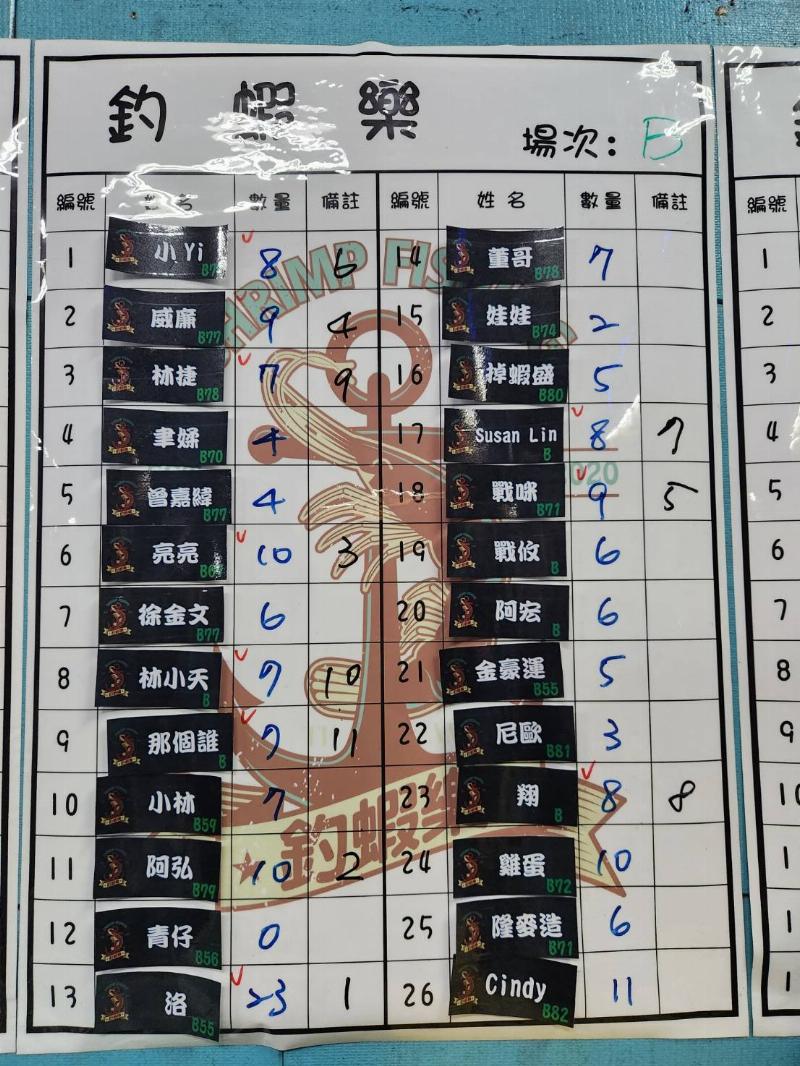 釣蝦樂
場次: B
編號 姓名 數量 備註 編號 姓名 數量 備註
1 小Yi B7 8 6 14 董哥 B78 7
2 威廉 B77 9 4 15 娃娃 B74 2
3 林捷 B78 7 9 16 掉蝦盛 B80 5
4 聿媣 B70 4 17 Susan Lin B 8 7
5 曾嘉緯 B77 4 18 戰咪 B71 9 5
6 亮亮 B6 10 3 19 戰攸 B 6
7 徐金文 B77 6 20 阿宏 B 6
8 林小天 B 7 10 21 金豪運 B55 5
9 那個誰 B 7 11 22 尼歐 B81 3
10 小林 B59 7 23 翔 B 8 8
11 阿弘 B79 10 2 24 雞蛋 B72 10
12 青仔 B56 0 25 隆麥造 B71 6
13 洛 B55 23 1 26 Cindy B82 11
SHRIMP FIS
2020
釣蝦樂
1
2
3
4
5
6
7
8
9
編號
1
2
3
4
5
6
7
8
9